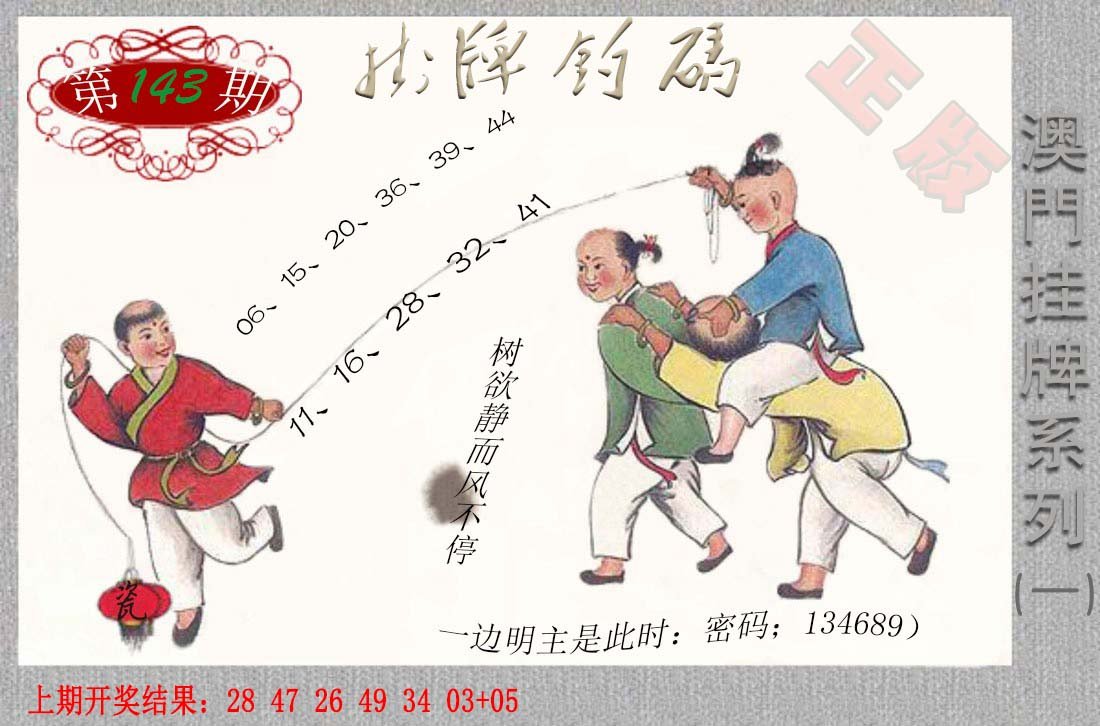 第143期
掛牌钓碼
正版
澳門挂牌系列(一)
06、15、20、36、39、44
11、16、28、32、41
树欲静而风不停
瓷
一边明主是此时：密码；134689）
上期开奖结果：28 47 26 49 34 03+05